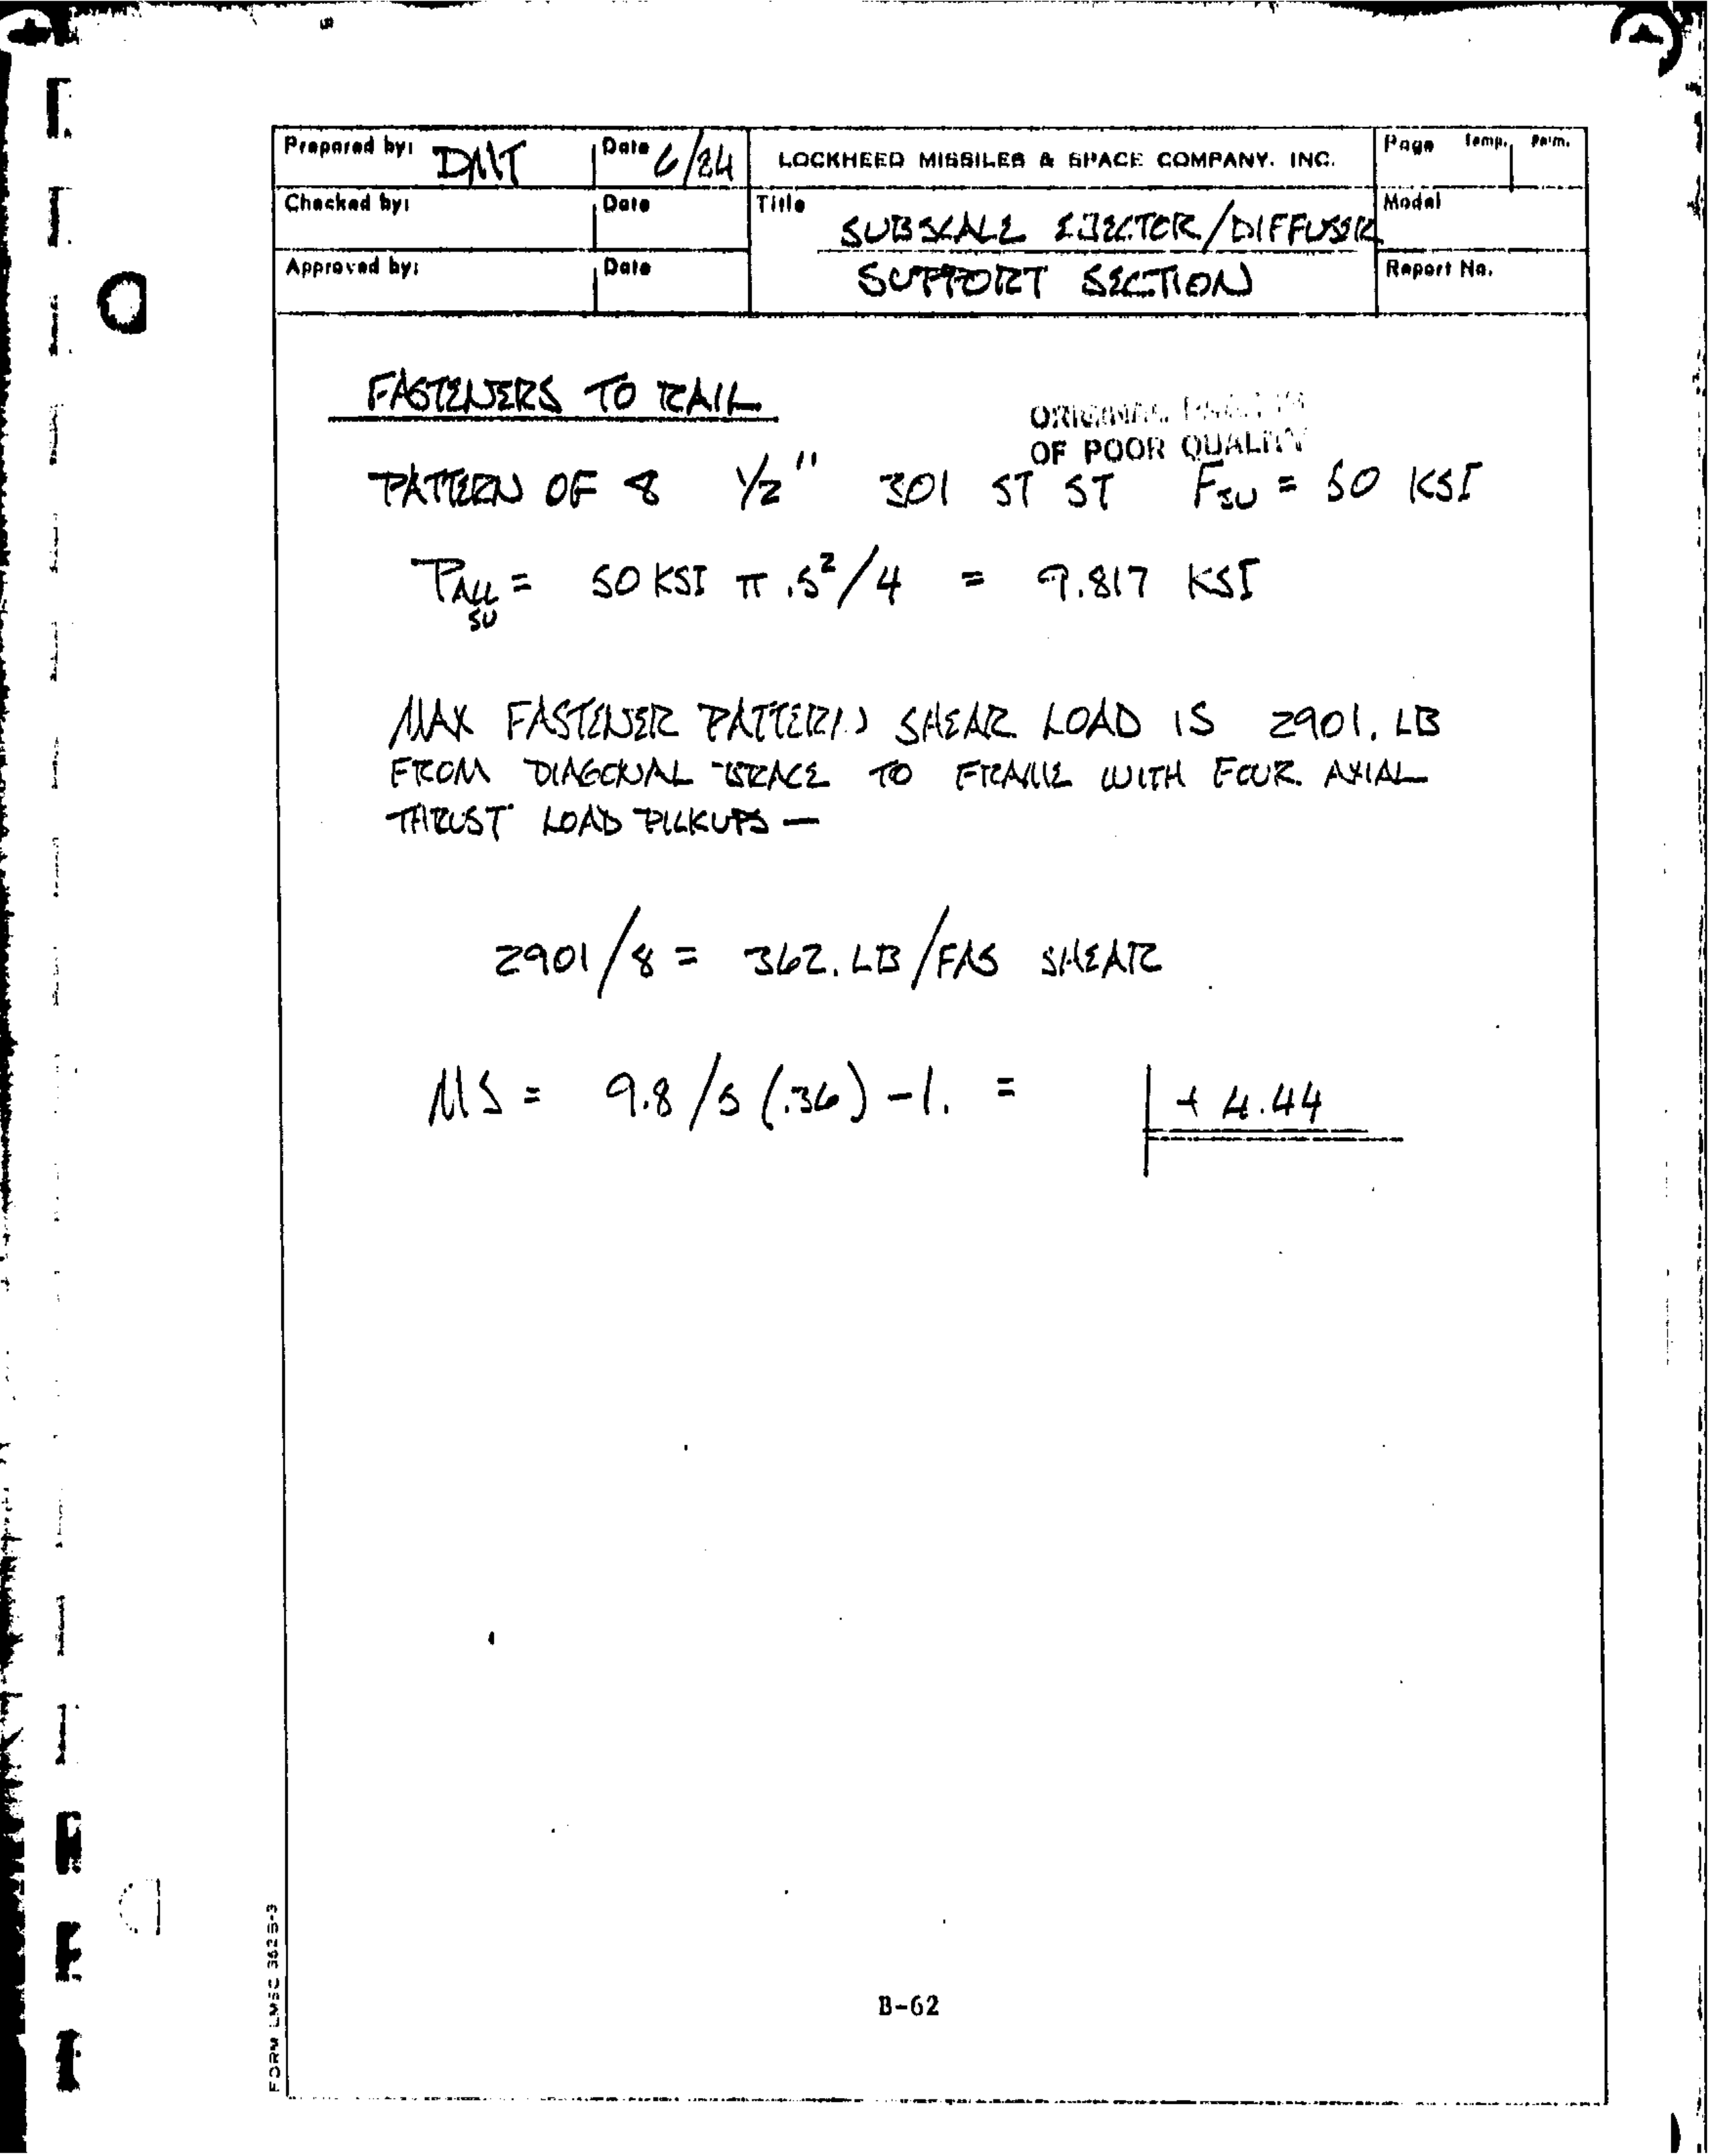 Prepared by: DMT Date 6/84 LOCKHEED MISSILES & SPACE COMPANY, INC. Page Temp. Perm.
Checked by: Date Title SUBSCALE EJECTOR/DIFFUSER Model
Approved by: Date SUPPORT SECTION Report No.
FASTENERS TO RAIL
ORIGINAL
OF POOR QUALITY
PATTERN OF 8 1/2" 301 ST ST FSU = 50 KSI
PALL SU = 50 KSI π .5²/4 = 9.817 KSI
MAX FASTENER PATTERN SHEAR LOAD IS 2901. LB
FROM DIAGONAL BRACE TO FRAME WITH FOUR AXIAL
THRUST LOAD PICKUPS —
2901/8 = 362. LB/FAS SHEAR
MS = 9.8/5 (.36) -1. = + 4.44
B-62
FORM LMSC 3625-3